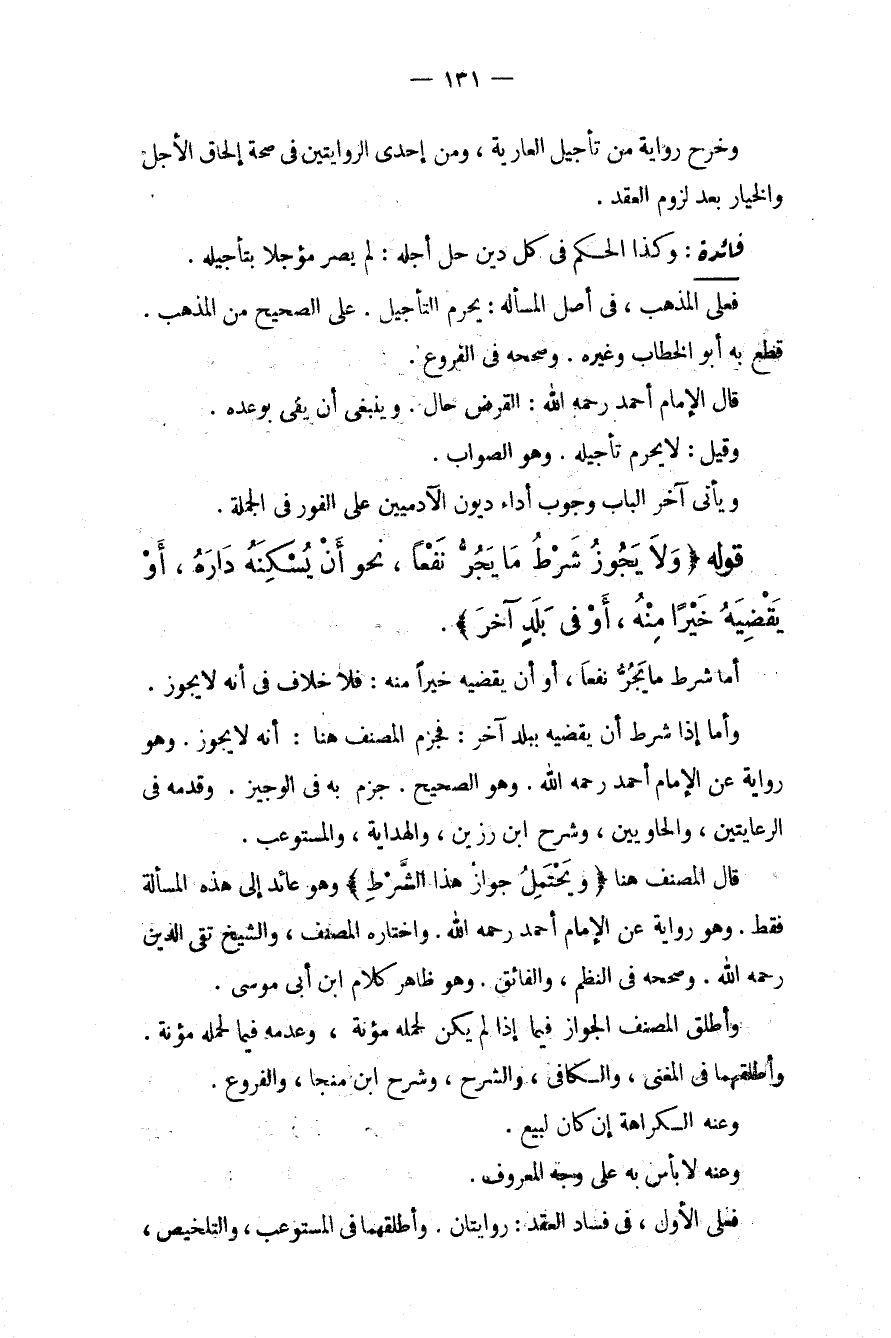 — ١٣١ —
وخرج رواية من تأجيل العارية ، ومن إحدى الروايتين فى صحة إلحاق الأجل
والخيار بعد لزوم العقد .
فائدة : وكذا الحكم فى كل دين حل أجله : لم يصر مؤجلا بتأجيله .
فعلى المذهب ، فى أصل المسأله : يحرم التأجيل . على الصحيح من المذهب .
قطع به أبو الخطاب وغيره . وصححه فى الفروع .
قال الإمام أحمد رحمه الله : القرض حال . وينبغى أن يفى بوعده .
وقيل : لايحرم تأجيله . وهو الصواب .
ويأتى آخر الباب وجوب أداء ديون الآدميين على الفور فى الجملة .
قوله ﴿ وَلاَ يَجُوزُ شَرْطُ مَا يَجُرُّ نَفْعاً ، نحو أَنْ يُسْكِنَهُ دَارَهُ ، أَوْ
يَقْضِيَهُ خَيْرًا مِنْهُ ، أَوْ فى بَلَدٍ آخرَ ﴾ .
أما شرط مايَجُرُّ نفعاً ، أو أن يقضيه خيراً منه : فلا خلاف فى أنه لايجوز .
وأما إذا شرط أن يقضيه ببلد آخر : فجزم المصنف هنا : أنه لايجوز . وهو
رواية عن الإمام أحمد رحمه الله . وهو الصحيح . جزم به فى الوجيز . وقدمه فى
الرعايتين ، والحاويين ، وشرح ابن رزين ، والهداية ، والمستوعب .
قال المصنف هنا ﴿ ويَحْتَمِلُ جوازَ هذا الشَّرْطِ ﴾ وهو عائد إلى هذه المسألة
فقط . وهو رواية عن الإمام أحمد رحمه الله . واختاره المصنف ، والشيخ تقى الدين
رحمه الله . وصححه فى النظم ، والفائق . وهو ظاهر كلام ابن أبى موسى .
وأطلق المصنف الجواز فيما إذا لم يكن لحمله مؤنة ، وعدمه فيما لحمله مؤنة .
وأطلقهما فى المغنى ، والكافى ، والشرح ، وشرح ابن منجا ، والفروع .
وعنه الكراهة إن كان لبيع .
وعنه لا بأس به على وجه المعروف .
فعلى الأول ، فى فساد العقد : روايتان . وأطلقهما فى المستوعب ، والتلخيص ،